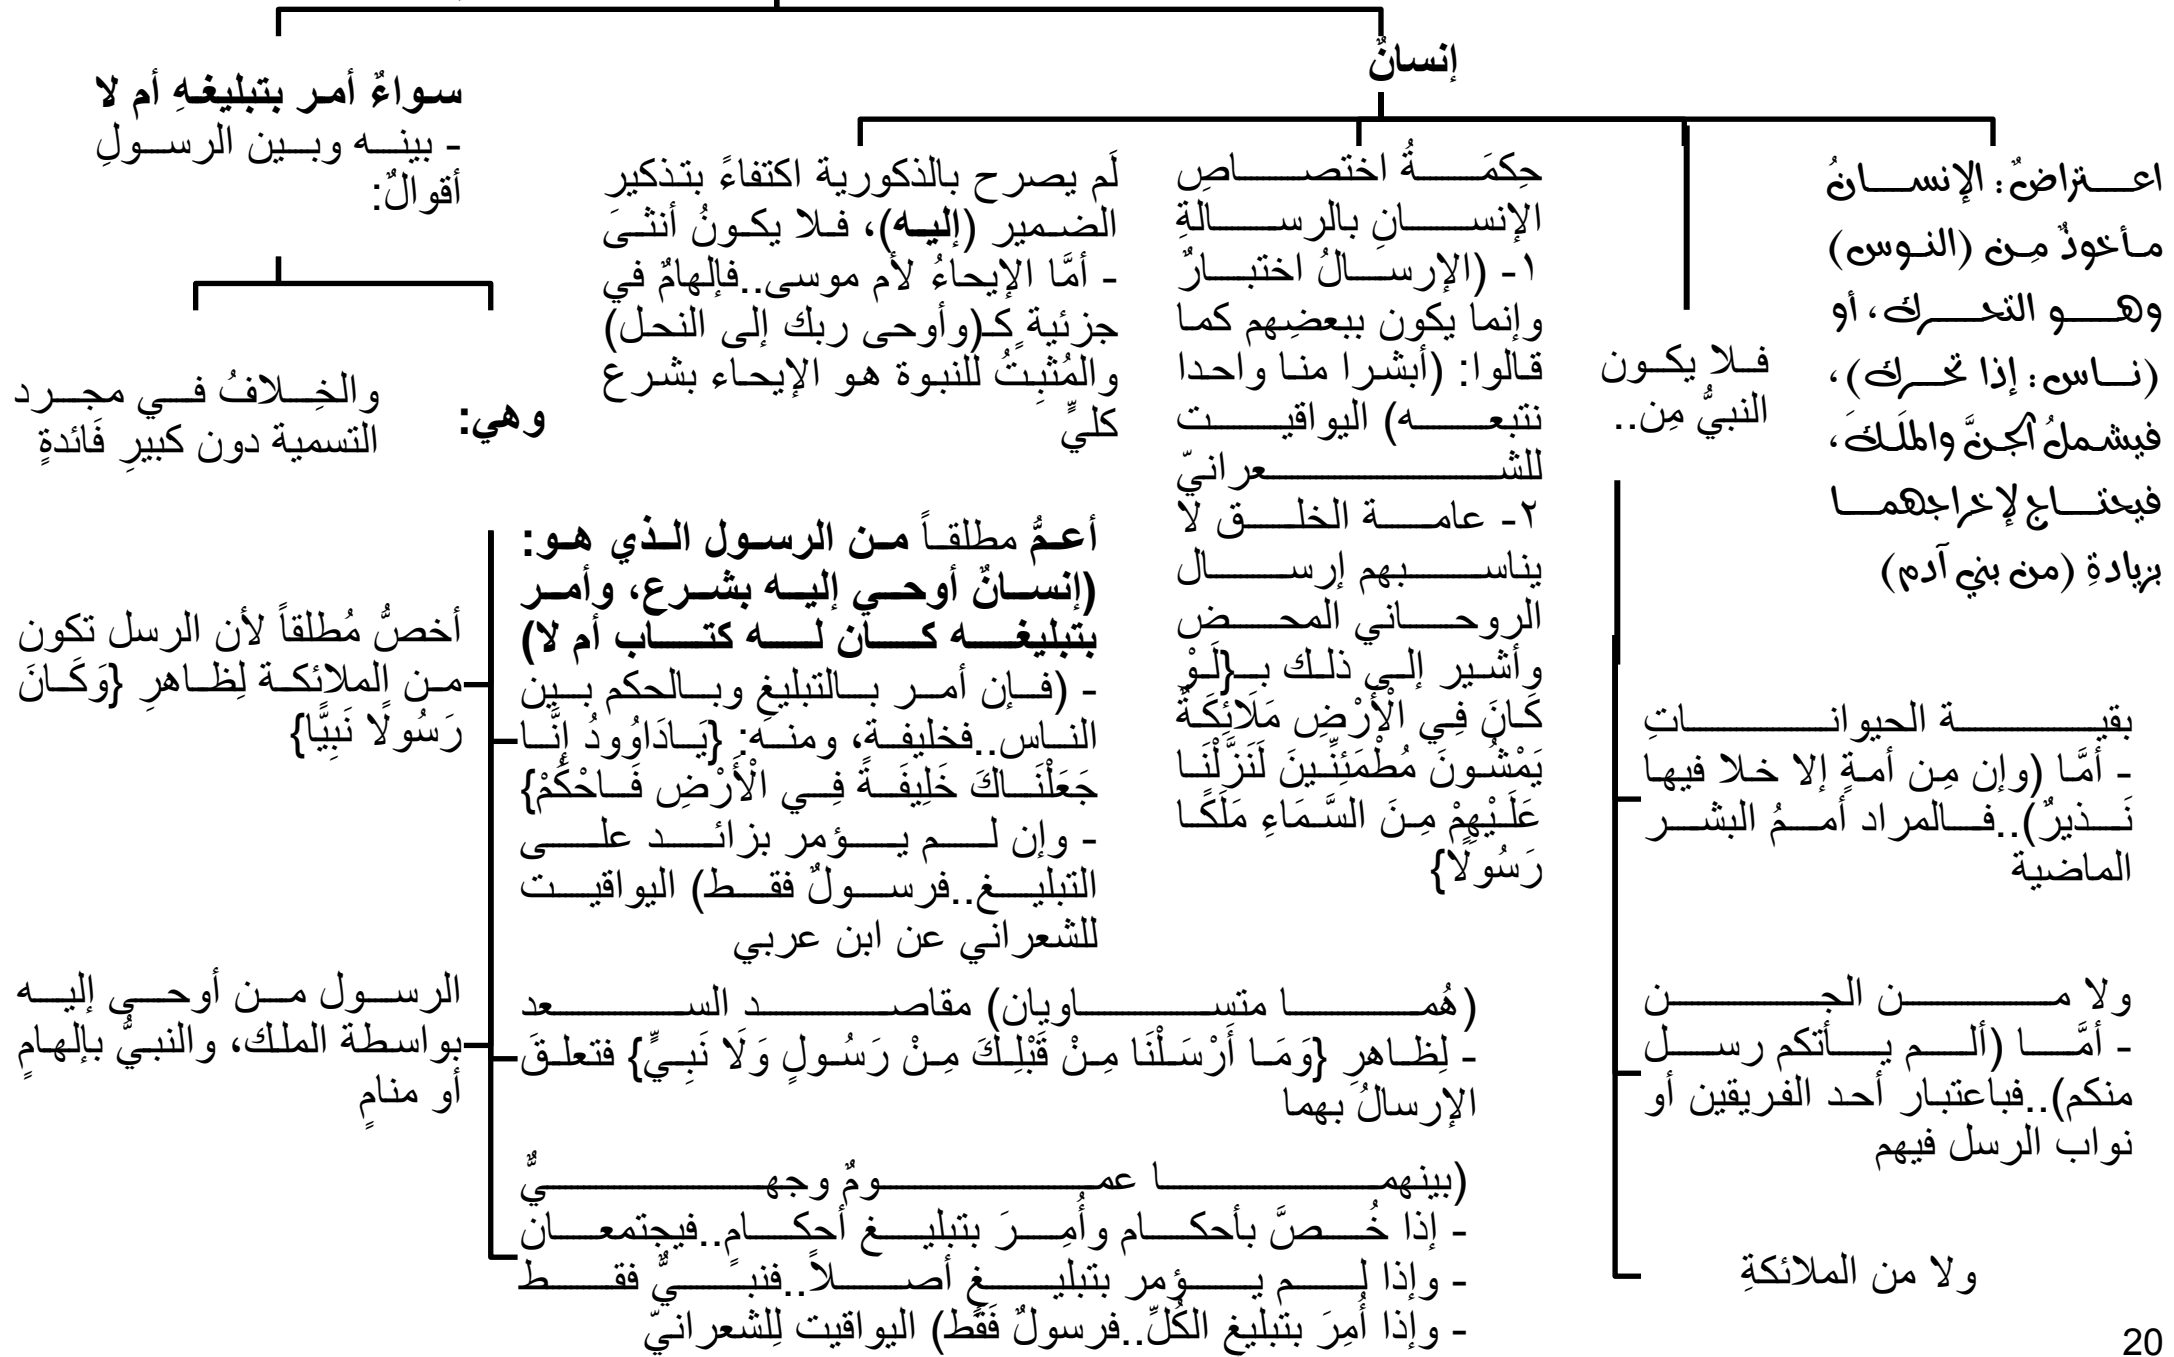 إنسانٌ
اعتراضٌ: الإنسانُ
مأخوذٌ مِن (النوس)
وهو التحرك، أو
(ناس: إذا تحرك)،
فيشملُ الجنَّ والملَكَ،
فيحتاج لإخراجهما
بزيادةِ (من بني آدم)
فلا يكون
النبيُّ مِن..
بقية الحيواناتِ
- أمَّا (وإن مِن أمةٍ إلا خلا فيها
نَذيرٌ)..فالمراد أممُ البشر
الماضية
ولا من الجن
- أمَّا (ألم يأتكم رسل
منكم)..فباعتبار أحد الفريقين أو
نواب الرسل فيهم
ولا من الملائكةِ
حِكمَةُ اختصاصِ
الإنسانِ بالرسالةِ
١- (الإرسالُ اختبارٌ
وإنما يكون ببعضِهم كما
قالوا: (أبشرا منا واحدا
نتبعه) اليواقيت
للشعرانيّ
٢- عامة الخلق لا
يناسبهم إرسال
الروحاني المحض
وأشير إلى ذلك بـ{لَوْ
كَانَ فِي الْأَرْضِ مَلَائِكَةٌ
يَمْشُونَ مُطْمَئِنِّينَ لَنَزَّلْنَا
عَلَيْهِمْ مِنَ السَّمَاءِ مَلَكًا
رَسُولًا}
لَم يصرح بالذكورية اكتفاءً بتذكير
الضمير (إليه)، فلا يكونُ أنثىَ
- أمَّا الإيحاءُ لأم موسى..فإلهامٌ في
جزئيةٍ كـ(وأوحى ربك إلى النحل)
والمُثبِتُ للنبوة هو الإيحاء بشرع
كليٍّ
سواءٌ أمر بتبليغهِ أم لا
- بينه وبين الرسولِ
أقوالٌ:
وهي:
والخِلافُ في مجرد
التسمية دون كبيرِ فَائدةٍ
أعمُّ مطلقاً من الرسول الذي هو:
(إنسانٌ أوحي إليه بشرع، وأمر
بتبليغه كان له كتاب أم لا)
- (فإن أمر بالتبليغِ وبالحكم بين
الناس..فخليفة، ومنه: {يَادَاوُودُ إِنَّا
جَعَلْنَاكَ خَلِيفَةً فِي الْأَرْضِ فَاحْكُمْ}
- وإن لم يؤمر بزائد على
التبليغ..فرسولٌ فقط) اليواقيت
للشعراني عن ابن عربي
(هُما متساويان) مقاصد السعد
- لِظاهرِ {وَمَا أَرْسَلْنَا مِنْ قَبْلِكَ مِنْ رَسُولٍ وَلَا نَبِيٍّ} فتعلقَ
الإرسالُ بهما
(بينهما عمومٌ وجهيٌّ
- إذا خُصَّ بأحكام وأُمِرَ بتبليغ أحكامٍ..فيجتمعان
- وإذا لم يؤمر بتبليغٍ أصلاً..فنبيٌّ فقط
- وإذا أُمِرَ بتبليغ الكُلِّ..فرسولٌ فَقَط) اليواقيت لِلشعرانيّ
أخصُّ مُطلقاً لأن الرسل تكون
من الملائكة لِظاهرِ {وَكَانَ
رَسُولًا نَبِيًّا}
الرسول من أوحى إليه
بواسطة الملك، والنبيُّ بإلهامٍ
أو منامٍ
20